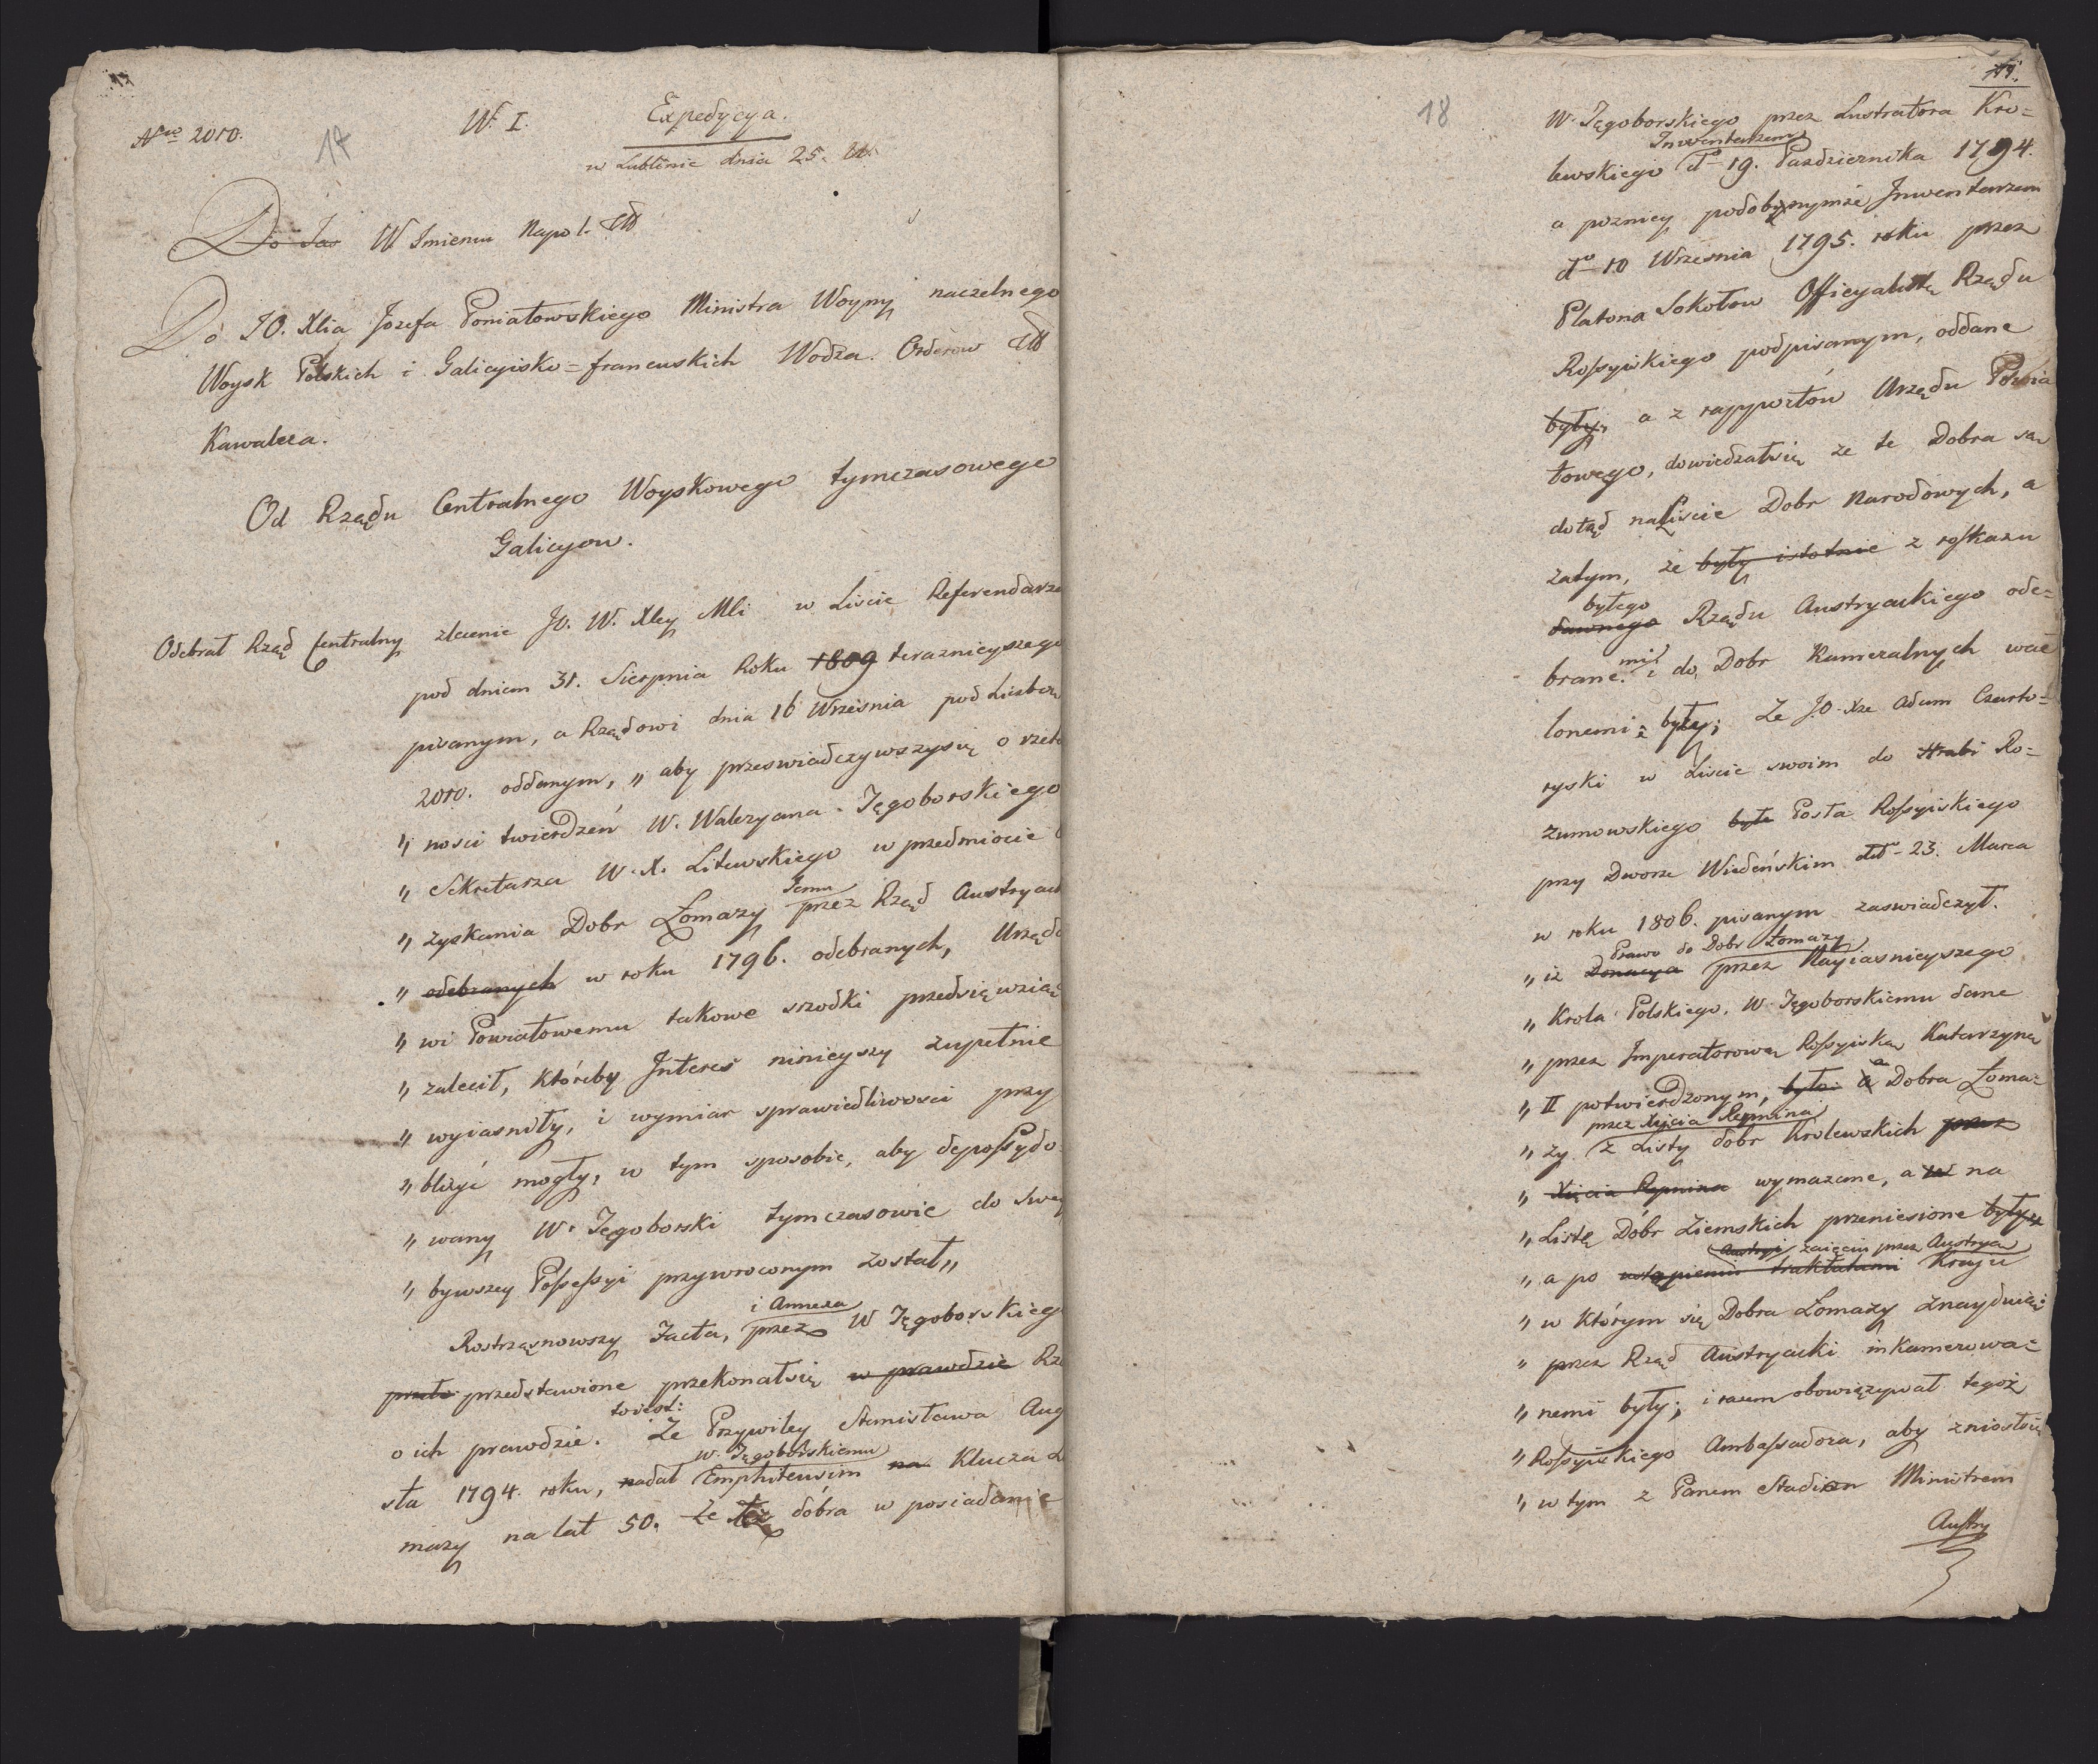 17
Nro 2010.
17
W. I.
Expedycya.
w Lublinie dnia 25.
Do Jas W Imieniu Napol. etc
Do JO. Xcia Jozefa Poniatowskiego Ministra Woyny naczelnego
Woysk Polskich i Galicyisko=francuskich Wodza. Orderow etc
Kawalera.
Od Rządu Centralnego Woyskowego tymczasowego
Galicyow.
Odebrał Rząd Centralny zlecenie Jo. W. Xcey Mci w Liscie Referendarza
pod dniem 31. Sierpnia Roku 1809 teraznieyszego
pisanym, a Rządowi dnia 16 Wrzesnia pod Liczbą
2010. oddanym, „ aby przeswiadczywszysię o rzetel
„ nosci twierdzeń W. Waleryana Tęgoborskiego
„ Sekretarza W. X. Litewskiego w przedmiocie
„ zyskania Dobr Łomazy Jemu przez Rząd Austryack
„ odebranych w roku 1796. odebranych, Urzędo
„ wi Powiatowemu takowe srzodki przedsięwziąć
„ zalecił, któreby Interes ninieyszy zupełnie
„ wyiasniły, i wymiar sprawiedliwosci przy
„ bliżyć mogły, w tym sposobie, aby depossydo
„ wany W. Tęgoborski tymczasowie do swey
„ bywszey Possessyi przywroconym został „
Rostrząsnowszy Jacta, i Annexa przez W Tęgoborskiego
przeto przedstawione przekonałsię w prawdzie Rz
o ich prawdzie. toiest: Że Przywiley Stanisława Aug
sta 1794. roku, nadał W. Tęgoborskiemu Emphiteusim na Klucza Ło
mazy na lat 50. Że też dóbra w posiadanie
18
W. Tęgoborskiego przez Lustratora Kro=
lewskiego Inwentarzem do 19. Pazdziernika 1794.
a pozniey podobnymże Inwentarzem
do 10 Wrzesnia 1795. roku przez
Platona Sokołow Officyalistę Rządu
Rossyiskiego podpisanym, oddane
były, a z rapportow Urzędu Powia
towego, dowiedzałsię że te Dobra są
dotąd na Liscie Dobr Narodowych, a
zatym, że były istotnie z roskazu
dawnego byłego Rządu Austryackiego ode=
brane. i do Dobr Kameralnych wcie
lonemi były; Że J.O. Xże Adam Czarto=
ryski w Liscie swoim do Hrabi Ro=
zumowskiego było Posła Rossyiskiego
przy Dworze Wiedeńskim dto 23. Marca
w roku 1806. pisanym zaswiadczył.
„ iż Donacya Prawo do Dobr Łomazy przez Nayiasnieyszego
„ Krola Polskiego, W. Tęgoborskiemu dane
„ przez Imperatorową Rossyiską Katarzynę
„ II potwierdzonym, było a Dobra Łoma=
„ zy przez Xięcia Repnina z Listy dobr Krolewskich przez
„ Xięcia Repnina wymazane, a w na
„ Listę Dóbr Ziemskich przeniesione były
„ a po ustąpieniu traktatami Austryi zaięciu przez Austryą Kraju
„ w którym się Dobra Łomazy znayduią:
„ przez Rząd Austryacki inkamerowa=
„ nemi były; i razem obowiązywał tegoż
„ Rossyiskiego Ambassadora, aby zniosłsię
„ w tym z Panem Stadion Ministrem
Austry